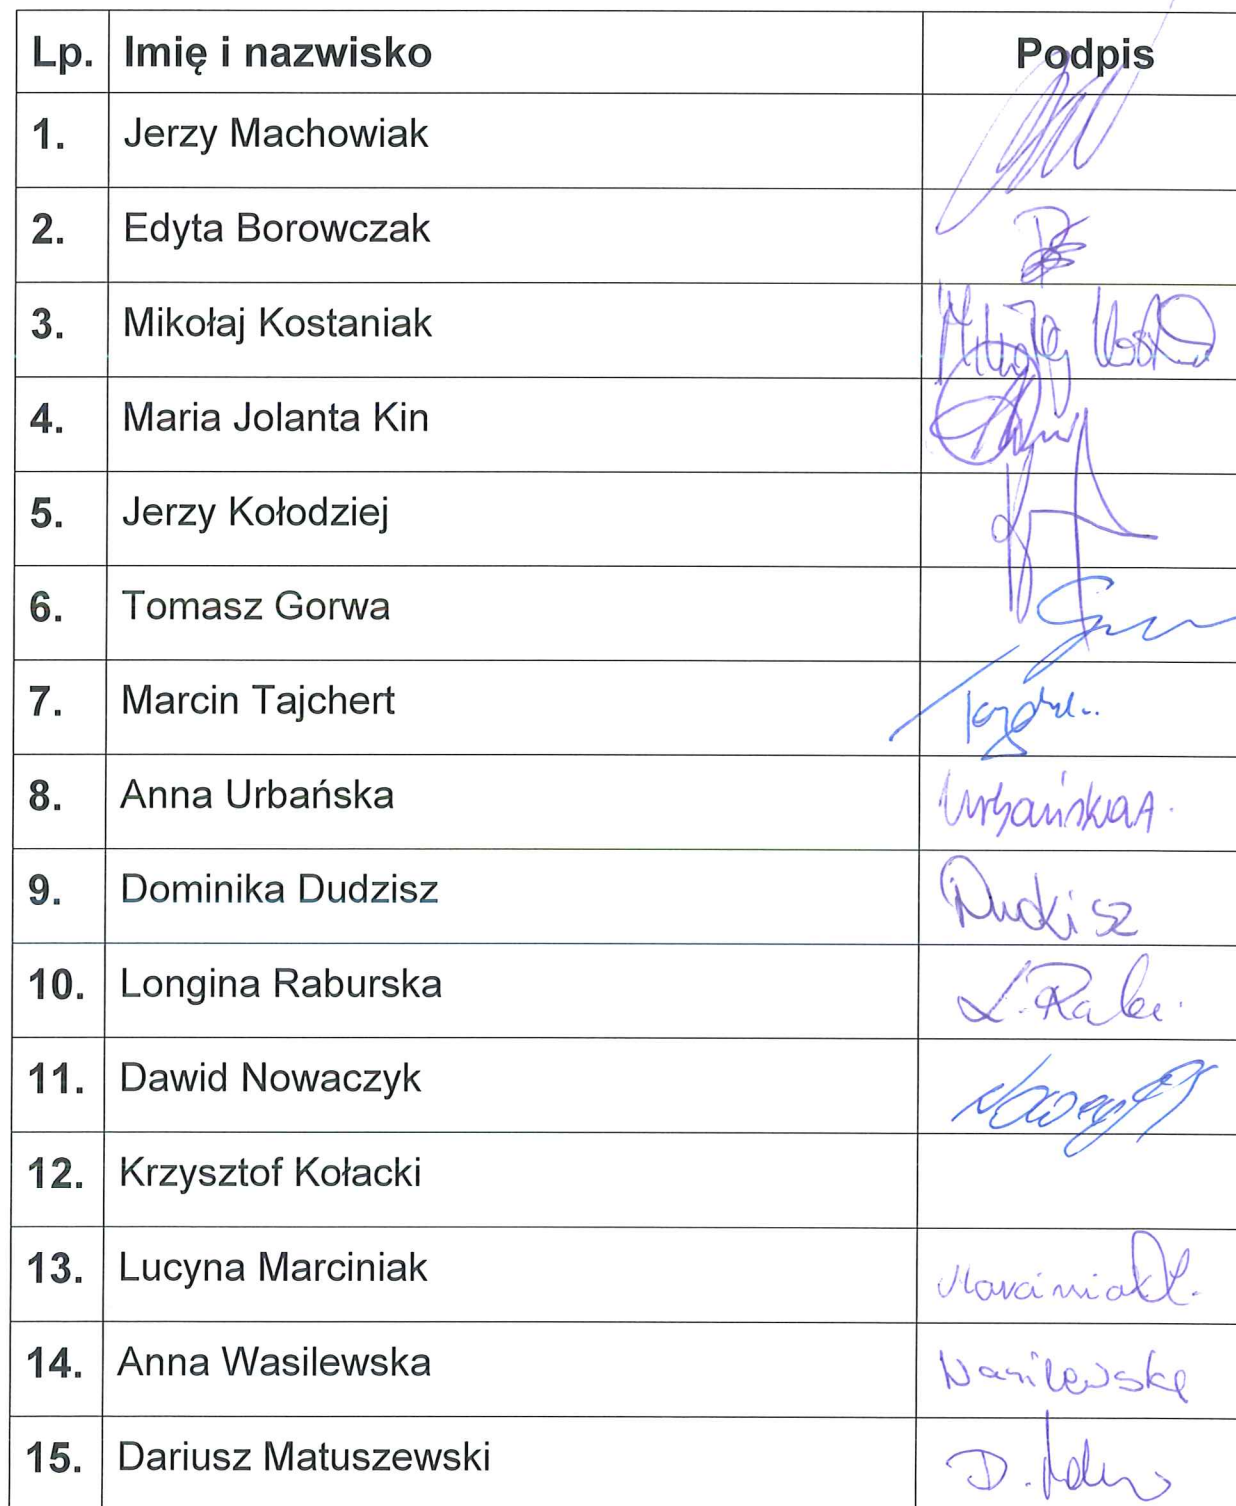 Lp. Imię i nazwisko Podpis
1. Jerzy Machowiak
2. Edyta Borowczak
3. Mikołaj Kostaniak
4. Maria Jolanta Kin
5. Jerzy Kołodziej
6. Tomasz Gorwa
7. Marcin Tajchert
8. Anna Urbańska Urbańska A.
9. Dominika Dudzisz Dudzisz
10. Longina Raburska
11. Dawid Nowaczyk
12. Krzysztof Kołacki
13. Lucyna Marciniak Marciniak L.
14. Anna Wasilewska Wasilewska
15. Dariusz Matuszewski